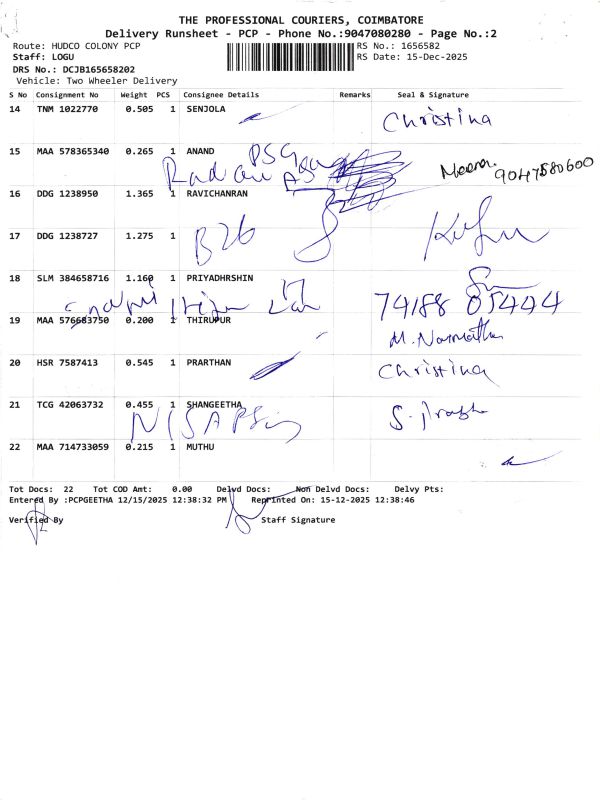 THE PROFESSIONAL COURIERS, COIMBATORE
Delivery Runsheet - PCP - Phone No.:9047080280 - Page No.:2
Route: HUDCO COLONY PCP RS No.: 1656582
Staff: LOGU RS Date: 15-Dec-2025
DRS No.: DCJB165658202
Vehicle: Two Wheeler Delivery
S No Consignment No Weight PCS Consignee Details Remarks Seal & Signature
14 TNM 1022770 0.505 1 SENJOLA
Christina
15 MAA 578365340 0.265 1 ANAND
PSG
Meena
9047580600
16 DDG 1238950 1.365 1 RAVICHANRAN
17 DDG 1238727 1.275 1
B2b
18 SLM 384658716 1.160 1 PRIYADHRSHIN
74188 05444
19 MAA 576683750 0.200 1 THIRUPUR
20 HSR 7587413 0.545 1 PRARTHAN
Christina
21 TCG 42063732 0.455 1 SHANGEETHA
22 MAA 714733059 0.215 1 MUTHU
Tot Docs: 22 Tot COD Amt: 0.00 Delvd Docs: Non Delvd Docs: Delvy Pts:
Entered By :PCPGEETHA 12/15/2025 12:38:32 PM Reprinted On: 15-12-2025 12:38:46
Verified By Staff Signature